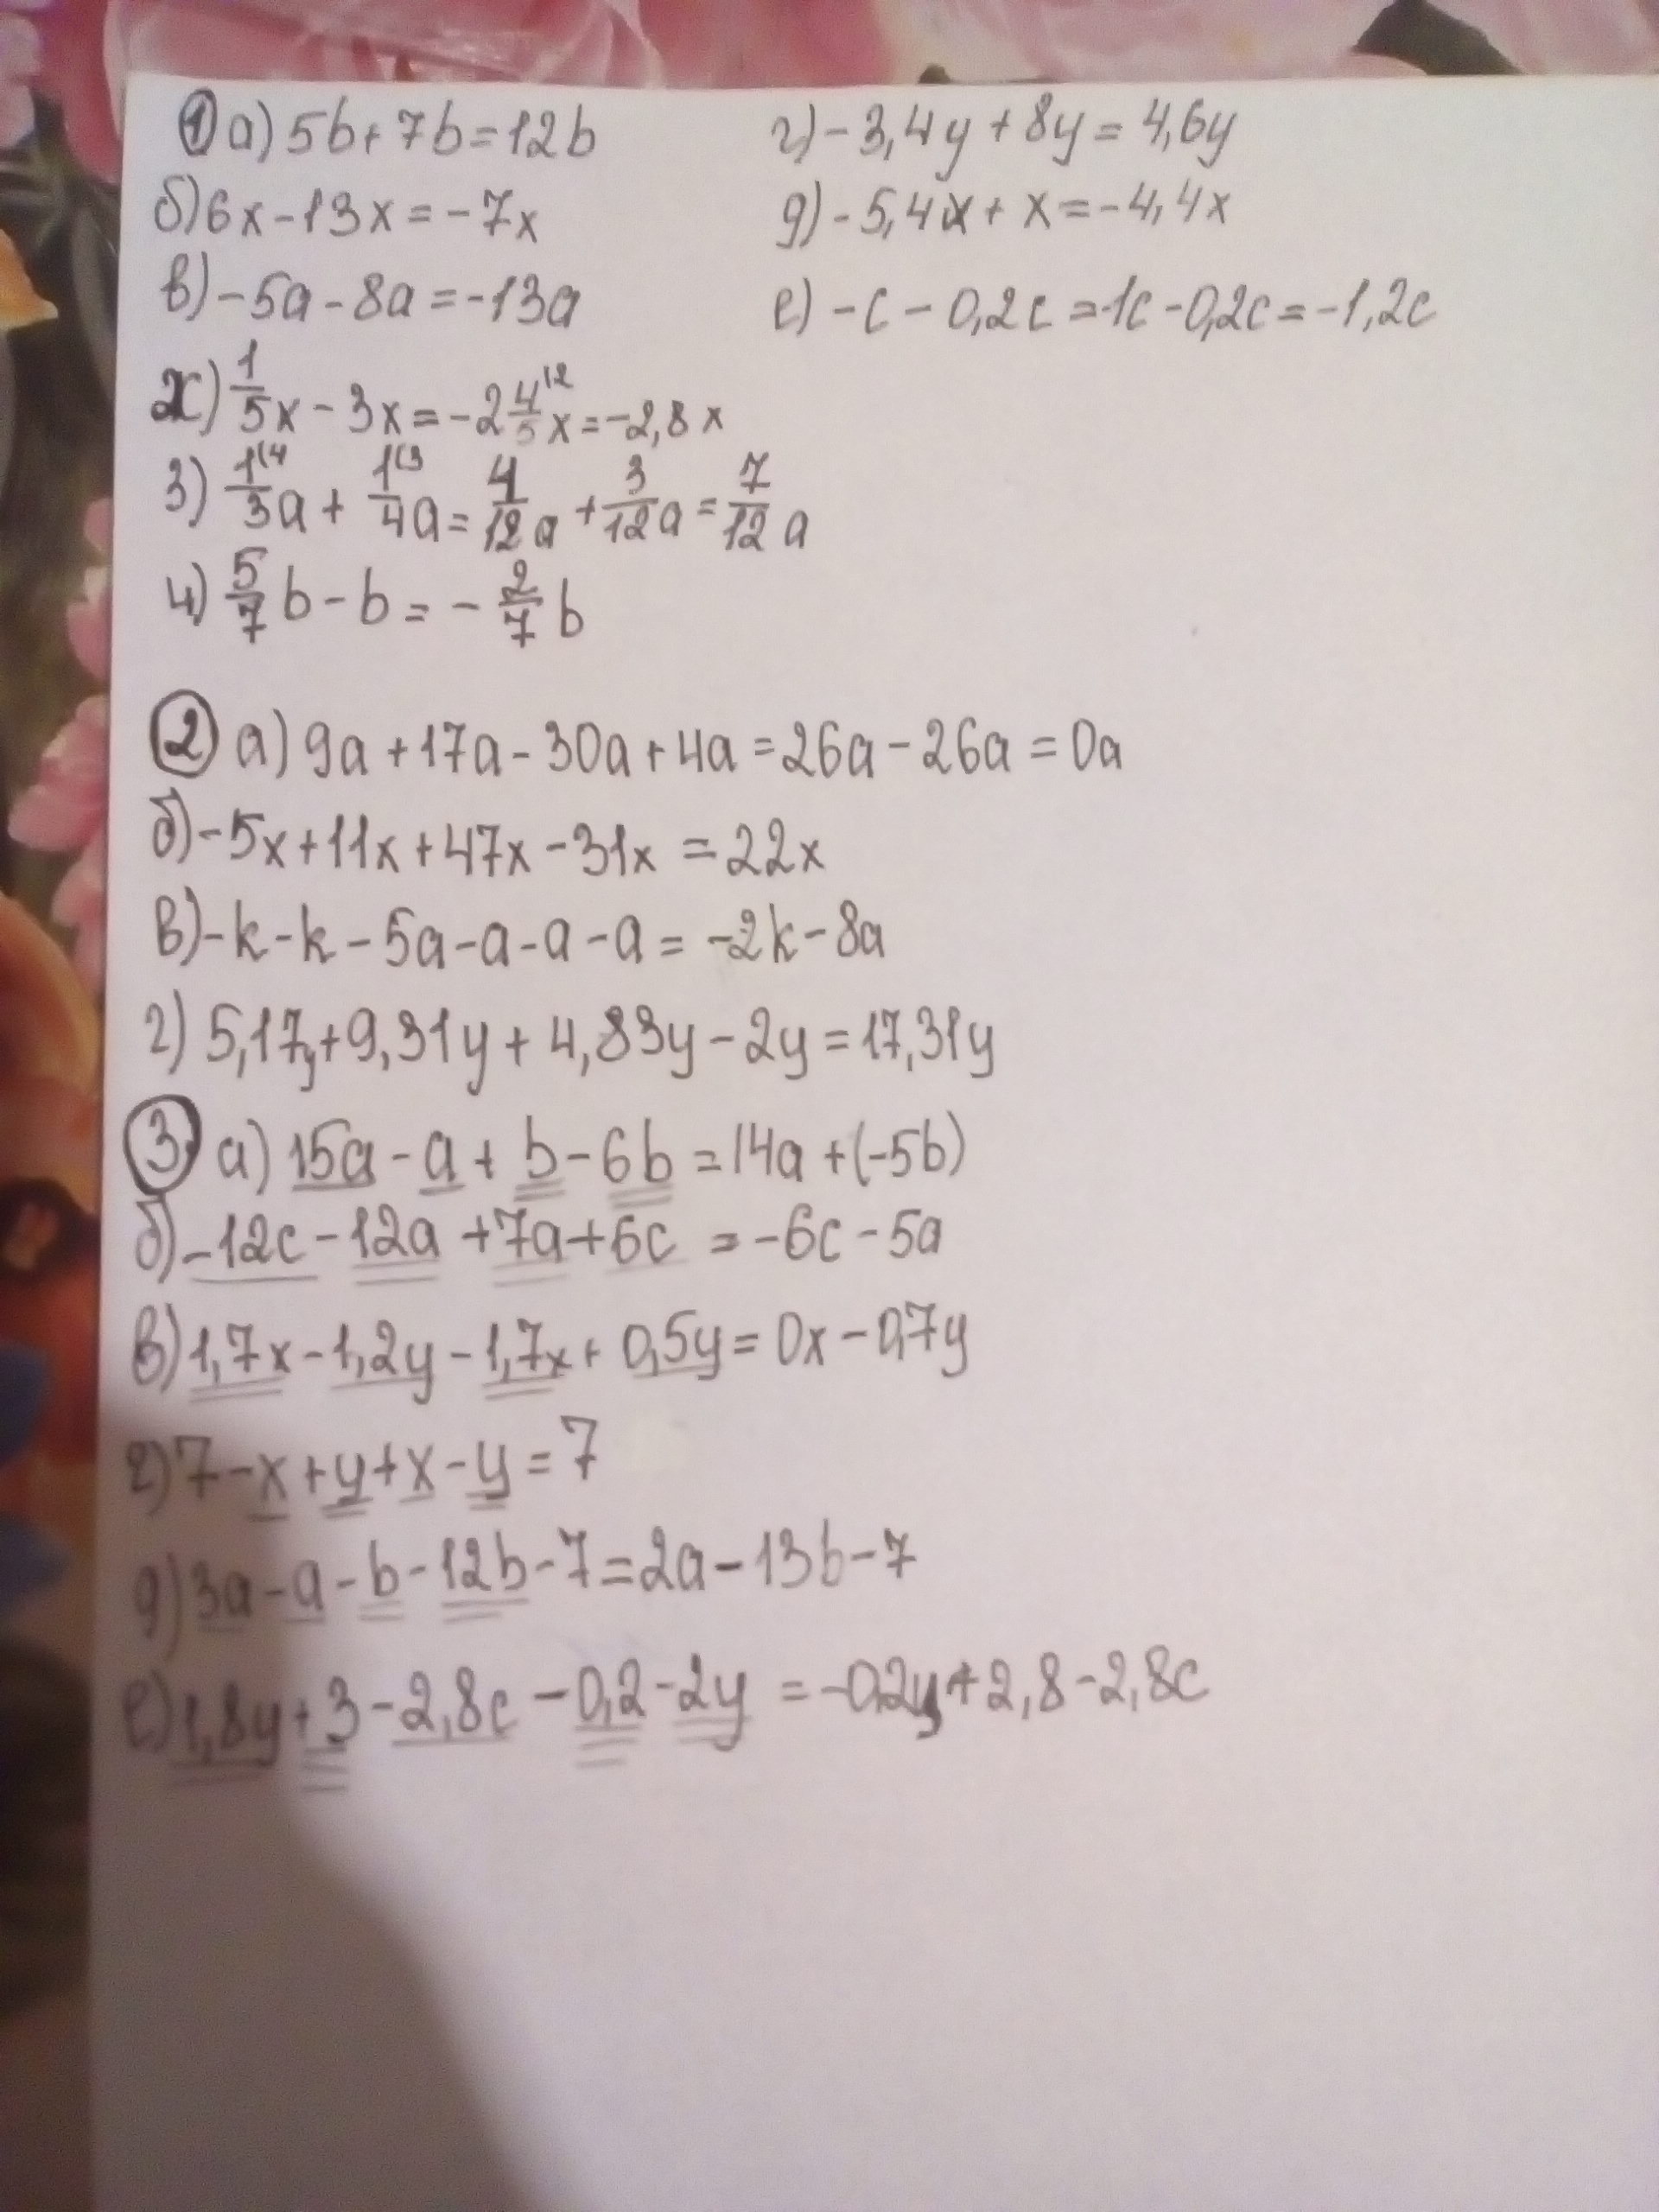 ① а) 5b+7b=12b
б) 6x-13x=-7x
в) -5a-8a=-13a
г) -3,4y+8y=4,6y
д) -5,4x+x=-4,4x
е) -c-0,2c=-1c-0,2c=-1,2c
ж) 1/5x-3x=-2 4/5 (2 x=-2,8x
з) 1/3 (4 a+1/4 (3 a=4/12a+3/12a=7/12a
и) 5/7b-b=-2/7b
② а) 9a+17a-30a+4a=26a-26a=0a
б) -5x+11x+47x-31x=22x
в) -k-k-5a-a-a-a=-2k-8a
г) 5,17y+9,31y+4,83y-2y=17,31y
③ а) 15a-a+b-6b=14a+(-5b)
б) -12c-12a+7a+6c=-6c-5a
в) 1,7x-1,2y-1,7x+0,5y=0x-0,7y
г) 7-x+y+x-y=7
д) 3a-a-b-12b-7=2a-13b-7
е) 1,8y+3-2,8c-0,2-2y=-0,2y+2,8-2,8c